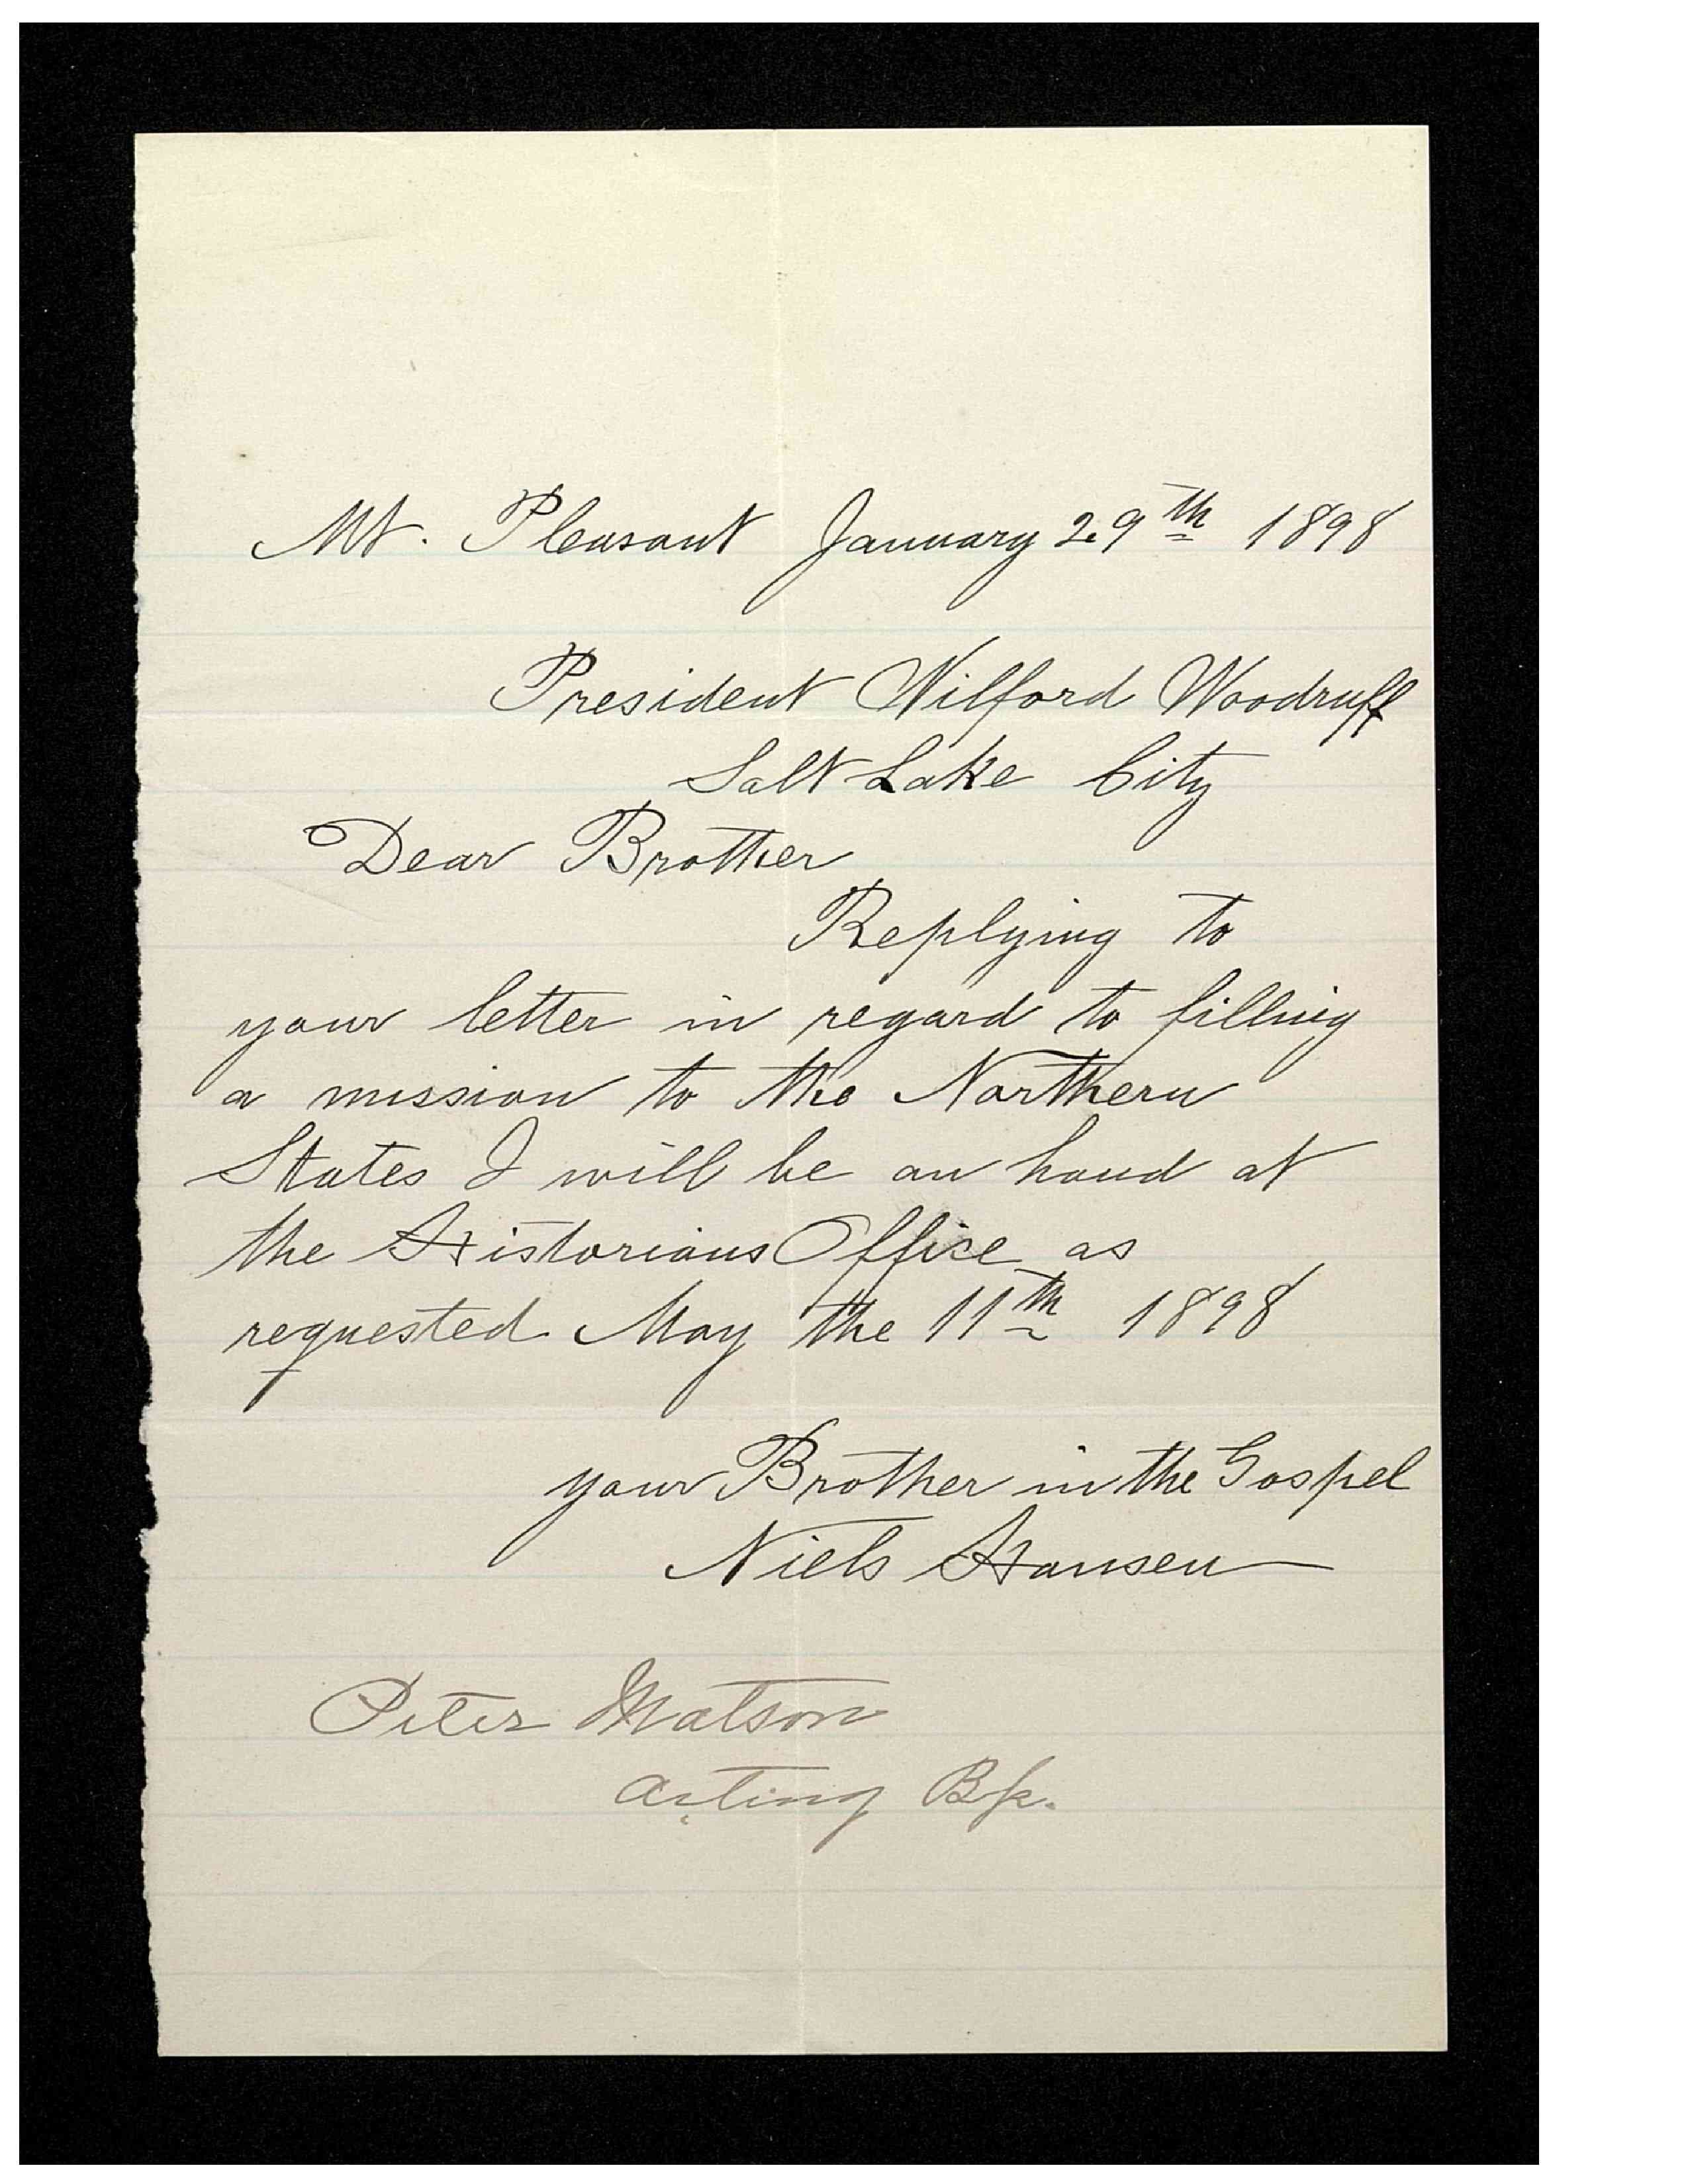 Mt. Pleasant January 29th 1898
President Wilford Woodruff
Salt Lake City
Dear Brother
Replying to
your letter in regard to filling
a mission to the Northern
States I will be on hand at
the Historians Office as
requested May the 11th 1898
your Brother in the Gospel
Niels Hansen
Peter Matson
Acting Bp.